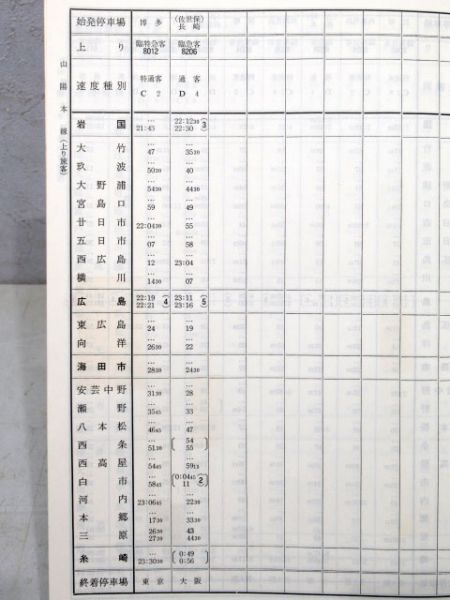 山陽本線(上り旅客)
始発停車場 博多 (佐世保)長崎
上り 臨特急客8012 臨急客8206
速度種別 特通客C2 通客D4
岩国 … 21:43 22:12³⁰ 22:30 ③
大竹 … 47 … 35³⁰
玖波 … 50³⁰ … 40
大野浦 … 54³⁰ … 44³⁰
宮島口 … 59 … 49
廿日市 … 22:04³⁰ … 55
五日市 … 07 … 58
西広島 … 12 … 23:04
横川 … 14³⁰ … 07
広島 22:19 22:21 ④ 23:11 23:16 ⑤
東広島 … 24 … 19
向洋 … 26³⁰ … 22
海田市 … 28³⁰ … 24³⁰
安芸中野 … 31³⁰ … 28
瀬野 … 35⁴⁵ … 33
八本松 … 46⁴⁵ … 47
西条 … 51³⁰ 54 55
西高屋 … 54⁴⁵ … 59¹⁵
白市 … 58⁴⁵ 0:04⁴⁵ 11 ②
河内 … 23:06⁴⁵ … 22³⁰
本郷 … 17³⁰ … 33³⁰
三原 26³⁰ 27³⁰ 43 44³⁰
糸崎 … 23:30³⁰ 0:49 0:56
終着停車場 東京 大阪